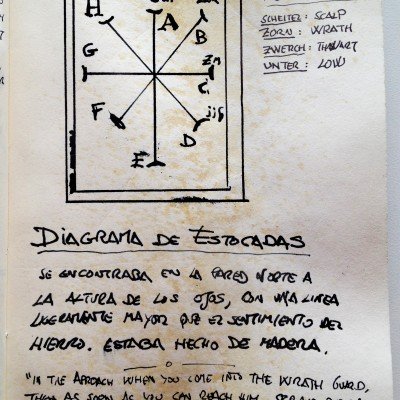 H
A
B
G
Zn
C
F
jjj
D
E
SCHEITEL: SCALP
ZORN: WRATH
ZWERCH: THWART
UNTER: LOW
DIAGRAMA DE ESTOCADAS
SE ENCONTRABA EN LA PARED NORTE A
LA ALTURA DE LOS OJOS, CON UNA LINEA
LIGERAMENTE MAYOR QUE EL SENTIMIENTO DEL
HIERRO. ESTABA HECHO DE MADERA.
"IN THE APROACH WHEN YOU COME INTO THE WRATH GUARD,
THEN AS SOON AS YOU CAN REACH HIM,